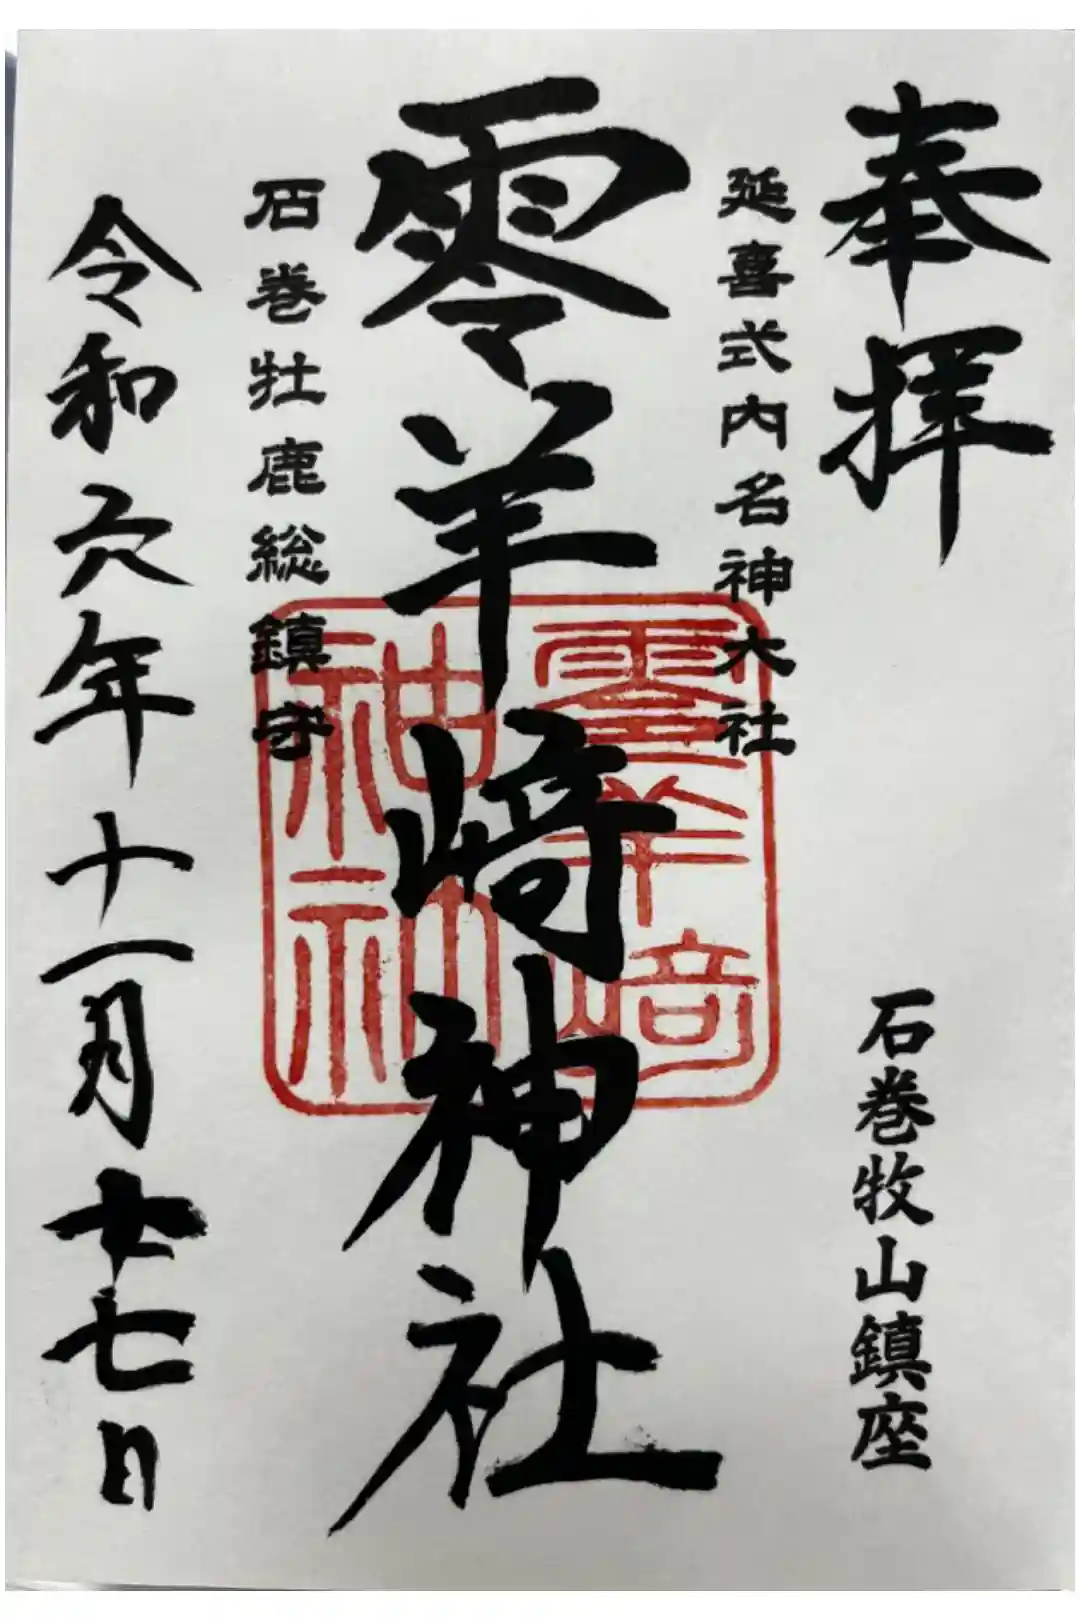 奉拝
石巻牧山鎮座
延喜式内名神大社
零羊﨑神社
石巻牡鹿総鎮守
令和六年十一月廿七日
零羊﨑
神社神社